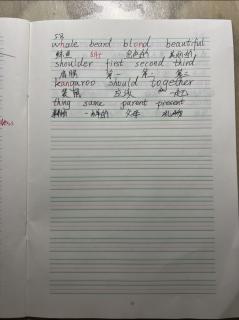 58
whale beard blond beautiful
鲸鱼 胡子 金色的 美丽的
shoulder first second third
肩膀 第一 第二 第三
kangaroo should together
袋鼠 应该 一起
thing same parent present
一样的 父母 礼物